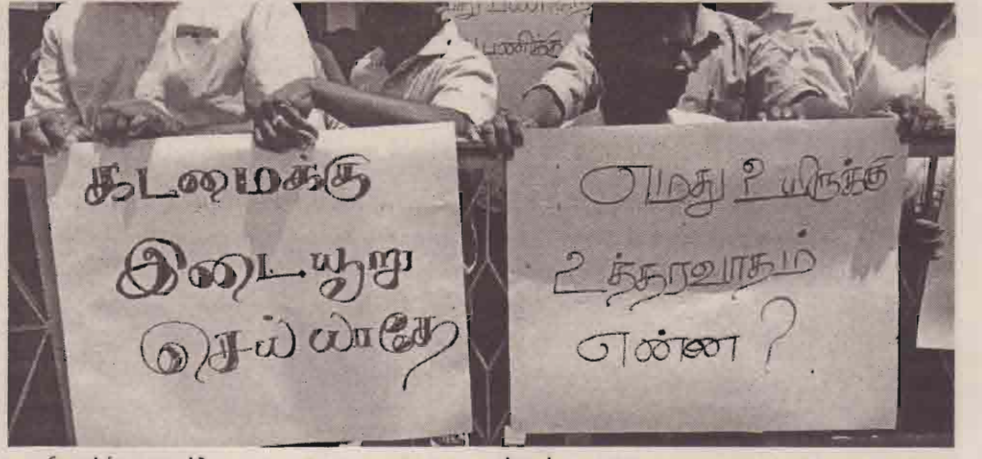 பணிக்கு
கடமைக்கு
இடையூறு
செய்யாதே
எமது உயிருக்கு
உத்தரவாதம்
என்ன?